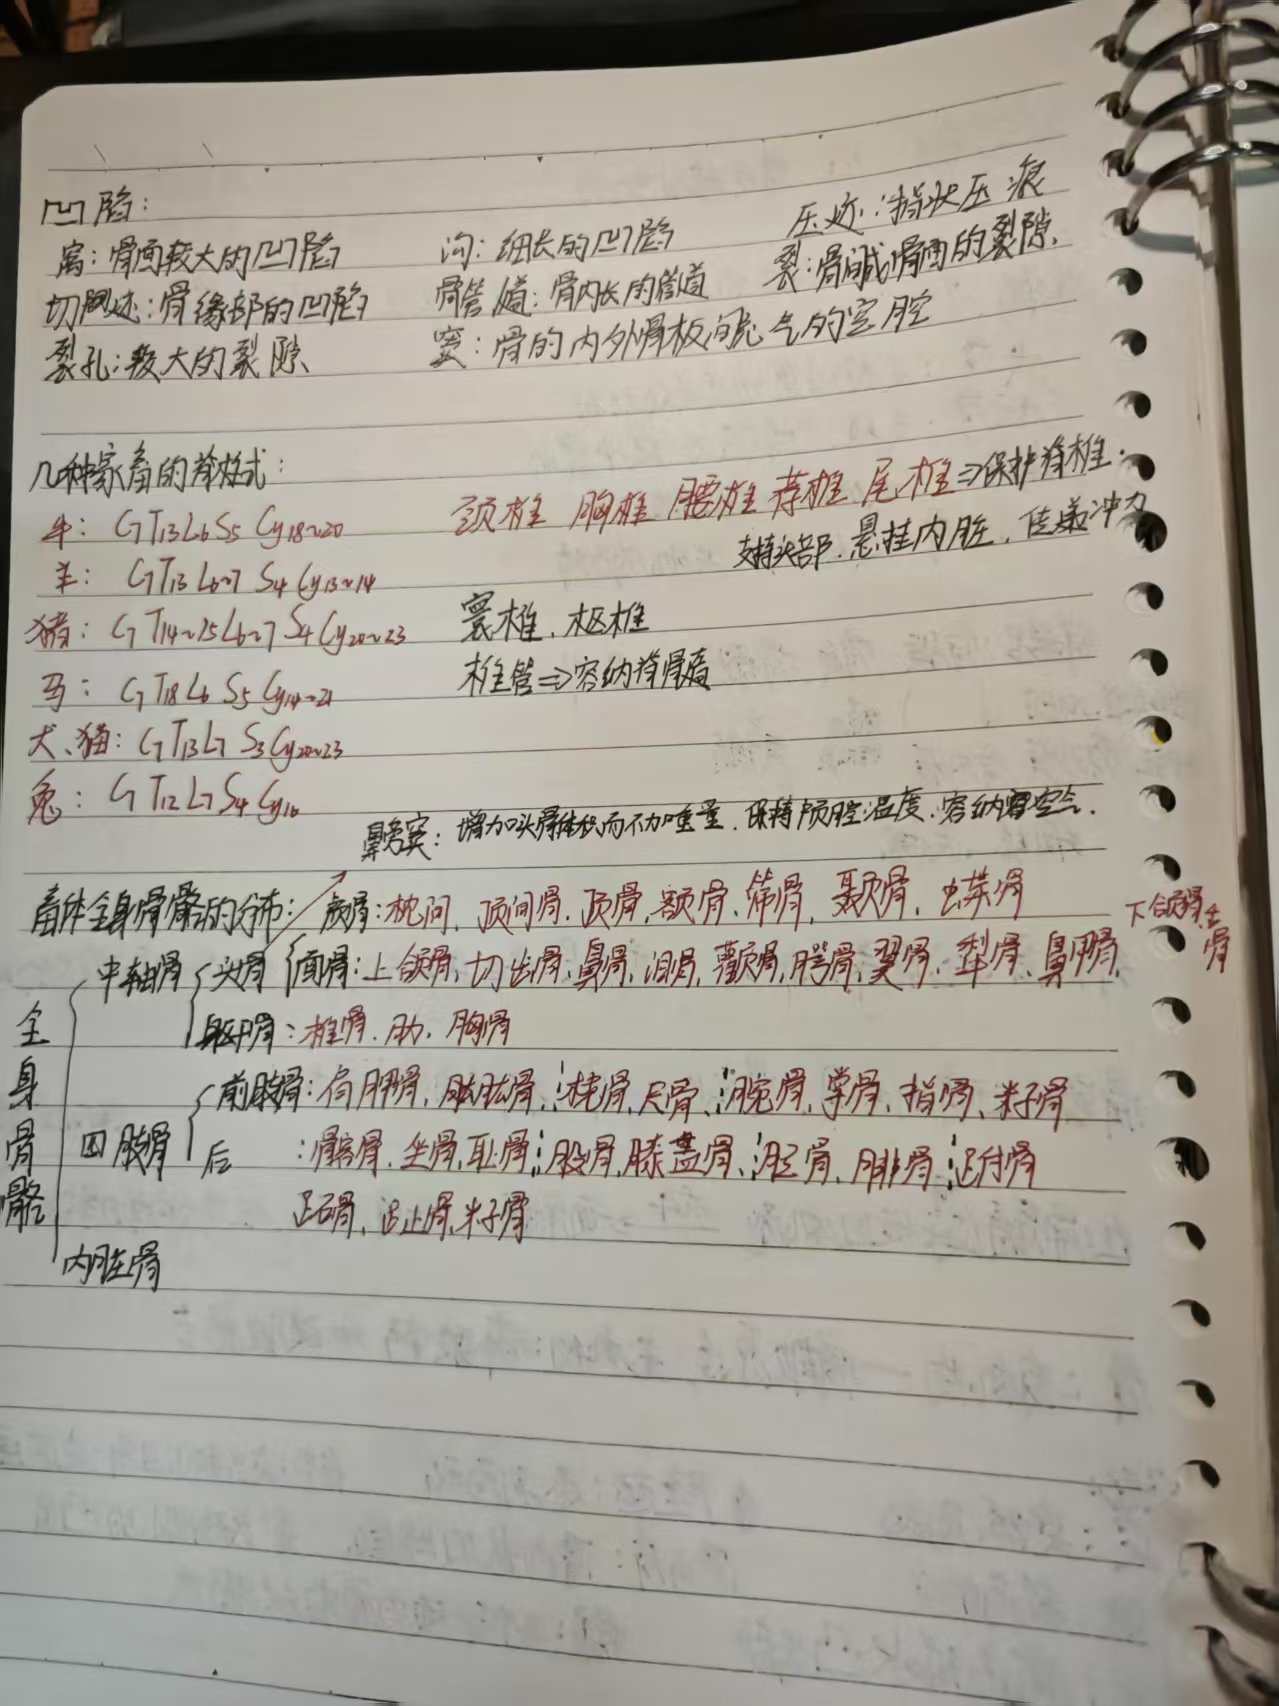 凹陷：
窝：骨面较大的凹陷 沟：细长的凹陷 压迹：指状压痕
切迹：骨缘部的凹陷 骨管道：骨内长的管道 裂：骨间或骨面的裂隙.
裂孔：较大的裂隙 窦：骨的内外骨板间充气的空腔
几种家畜的脊柱式：
颈椎 胸椎 腰椎 荐椎 尾椎⇒保护脊椎.
牛：C7T13L6S5Cy18~20
支持头部.悬挂内脏，传递冲力
羊：C7T13L6~7S4Cy13~14
猪：C7T14~15L6~7S4Cy20~23 寰椎.枢椎
马：C7T18L6S5Cy14~21 椎管⇒容纳脊骨髓
犬、猫：C7T13L7S3Cy20~23
兔：C7T12L7S4Cy16
鼻旁窦：增加头骨体积而不加重量.保持颅腔温度.容纳空气.
畜体全身骨骼的分布：颅骨：枕骨、顶间骨、顶骨、额骨、筛骨、颞骨、蝶骨
中轴骨 头骨 面骨：上颌骨、切齿骨、鼻骨、泪骨、颧骨、腭骨、翼骨、犁骨、鼻甲骨、下颌骨、舌骨
躯干骨：椎骨、肋、胸骨
全身骨骼
四肢骨 前肢骨：肩胛骨、肱骨、桡骨、尺骨、腕骨、掌骨、指骨、籽骨
后 ：髂骨、坐骨、耻骨、股骨、膝盖骨、胫骨、腓骨、跗骨
跖骨、趾骨、籽骨
内脏骨